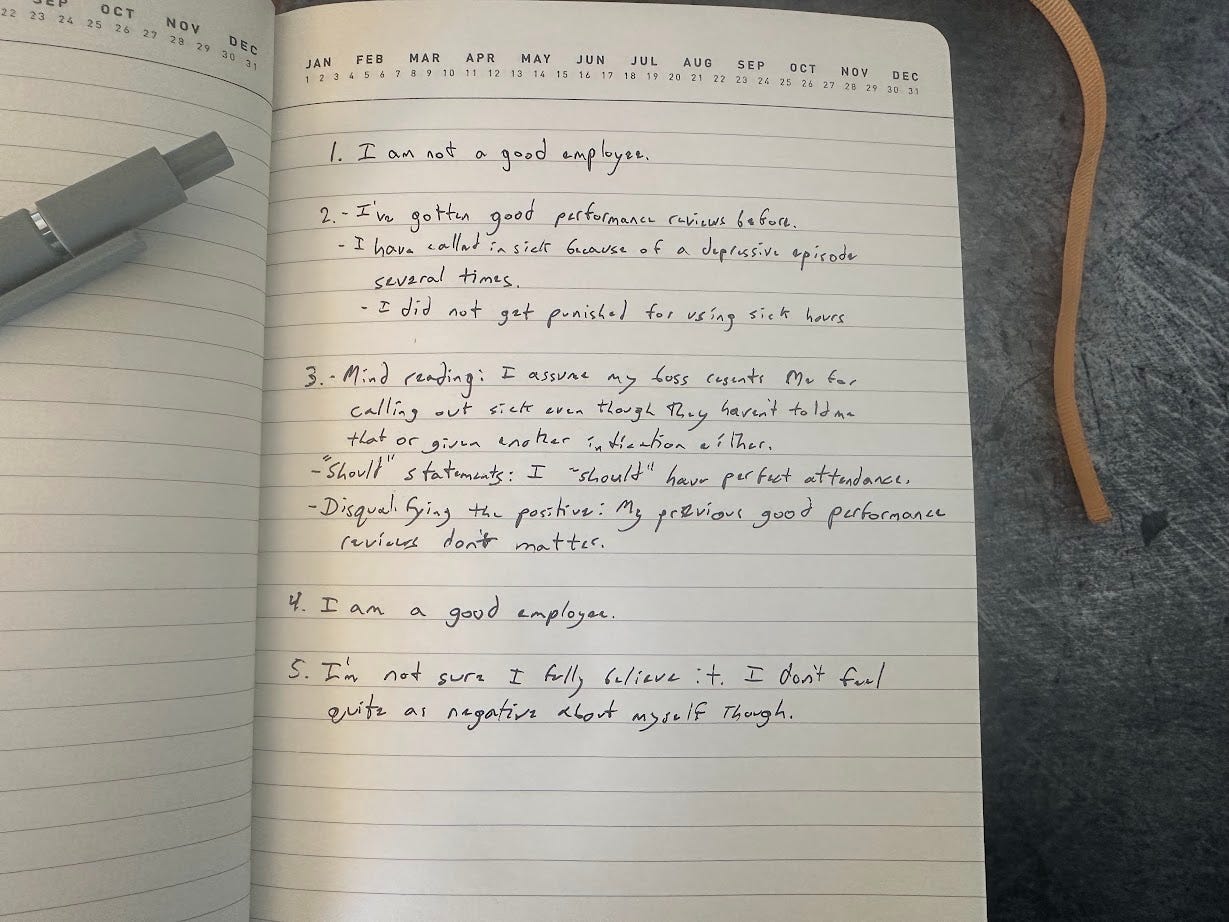 SEP OCT NOV DEC
22 23 24 25 26 27 28 29 30 31
JAN FEB MAR APR MAY JUN JUL AUG SEP OCT NOV DEC
1 2 3 4 5 6 7 8 9 10 11 12 13 14 15 16 17 18 19 20 21 22 23 24 25 26 27 28 29 30 31
1. I am not a good employee.
2. - I've gotten good performance reviews before.
- I have called in sick because of a depressive episode
several times.
- I did not get punished for using sick hours
3. - Mind reading: I assume my boss resents Me for
calling out sick even though They haven't told me
that or given another indication either.
- "Should" statements: I "should" have perfect attendance.
- Disqualifying the positive: My previous good performance
reviews don't matter.
4. I am a good employee.
5. I'm not sure I fully believe it. I don't feel
quite as negative about myself Though.